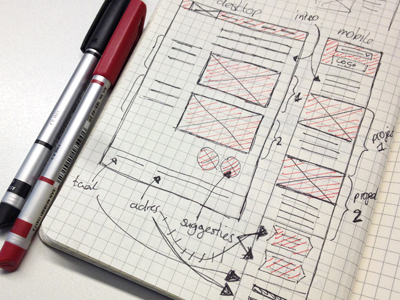 desktop
intro
mobile
logo
1
2
project
1
project
2
taal
adres
suggesties